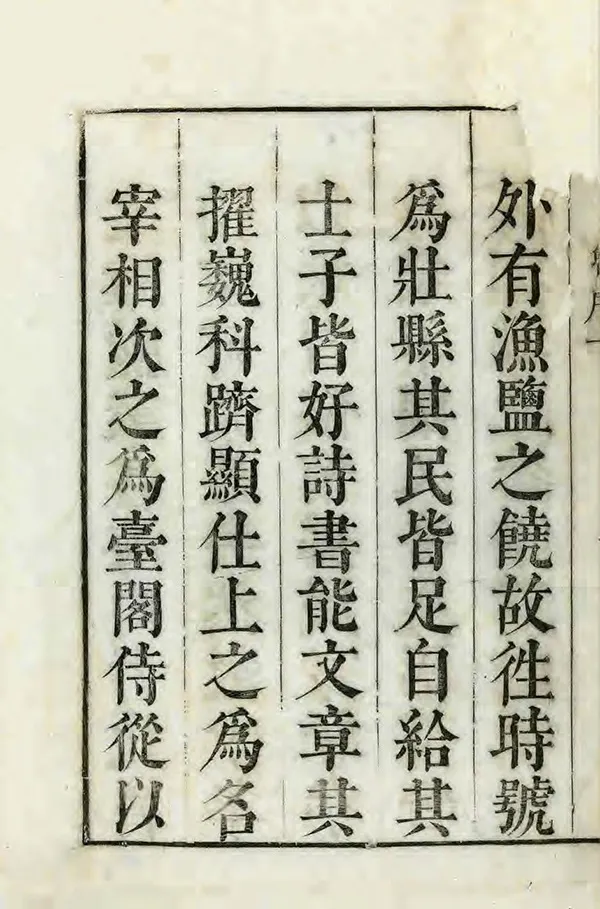 外有漁鹽之饒故徃時號
為壯縣其民皆足自給其
士子皆好詩書能文章其
擢巍科躋顯仕上之為名
宰相次之為臺閣侍從以